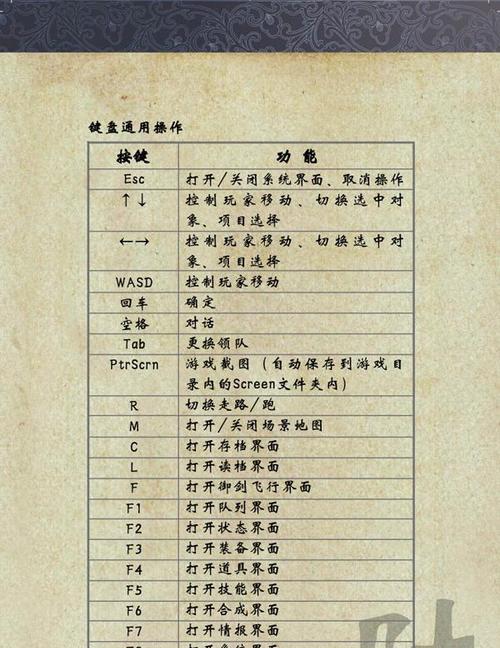 键盘通用操作
按键 功能
Esc 打开/关闭系统界面、取消操作
↑↓ 控制玩家移动、切换选中对
象、项目选择
←→ 控制玩家移动、切换选中对
象、项目选择
WASD 控制玩家移动
回车 确定
空格 对话
Tab 更换领队
PtrScrn 游戏截图(自动保存到游戏目
录内的Screen文件夹内)
R 切换走路/跑
M 打开/关闭场景地图
C 打开存档界面
L 打开读档界面
F 打开御剑飞行界面
F1 打开队列界面
F2 打开状态界面
F3 打开装备界面
F4 打开道具界面
F5 打开技能界面
F6 打开合成界面
F7 打开情报界面